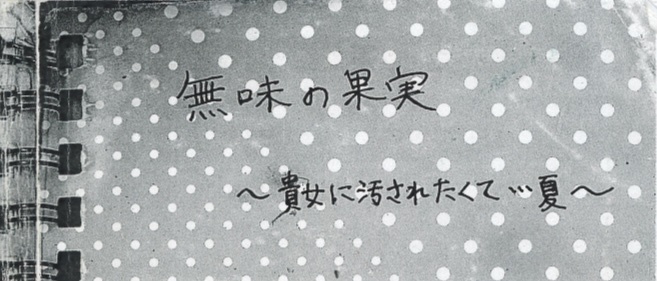 無味の果実
～貴女に汚されたくて…夏～